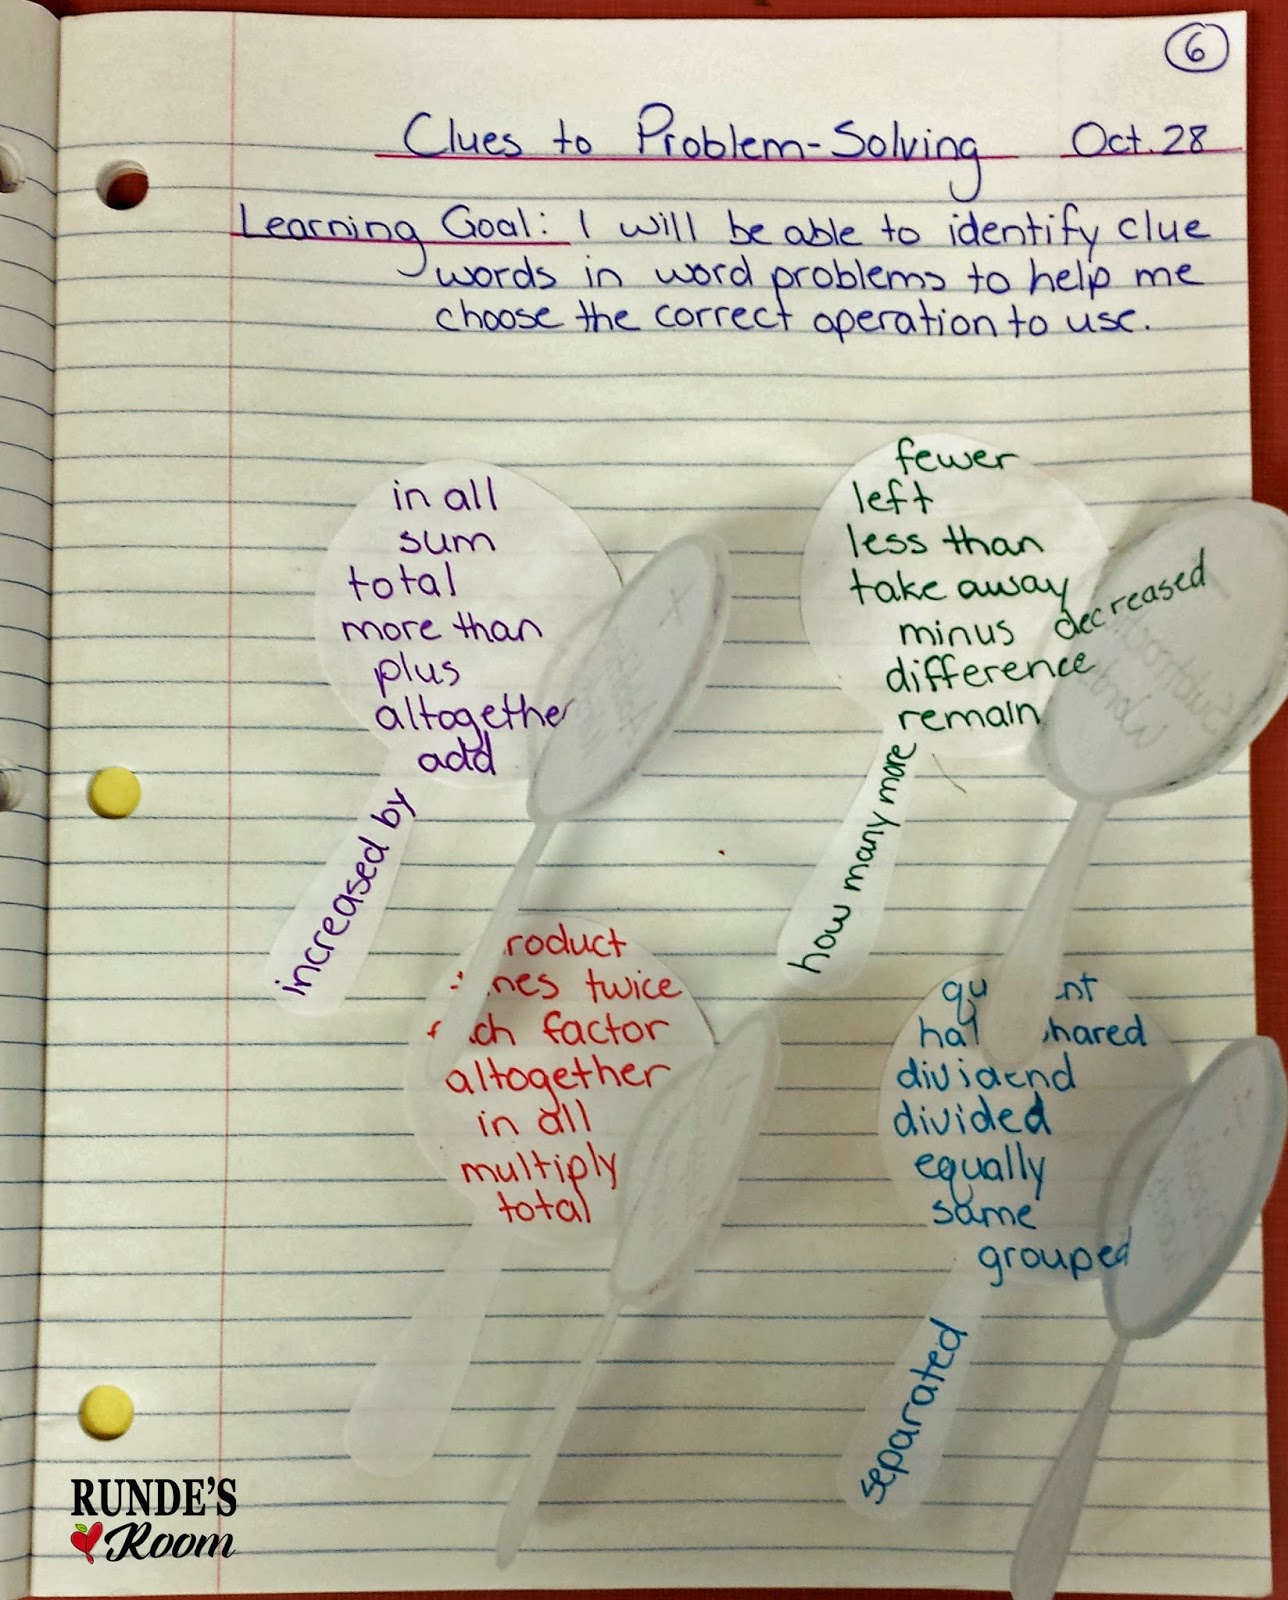 6
Clues to Problem-Solving Oct. 28
Learning Goal: I will be able to identify clue
words in word problems to help me
choose the correct operation to use.
in all
sum
total
more than
plus
altogether
add
increased by
fewer
left
less than
take away
minus
decreased
difference
remain
how many more
roduct
twice
factor
altogether
in all
multiply
total
shared
dividend
divided
equally
same
grouped
separated
RUNDE'S
Room